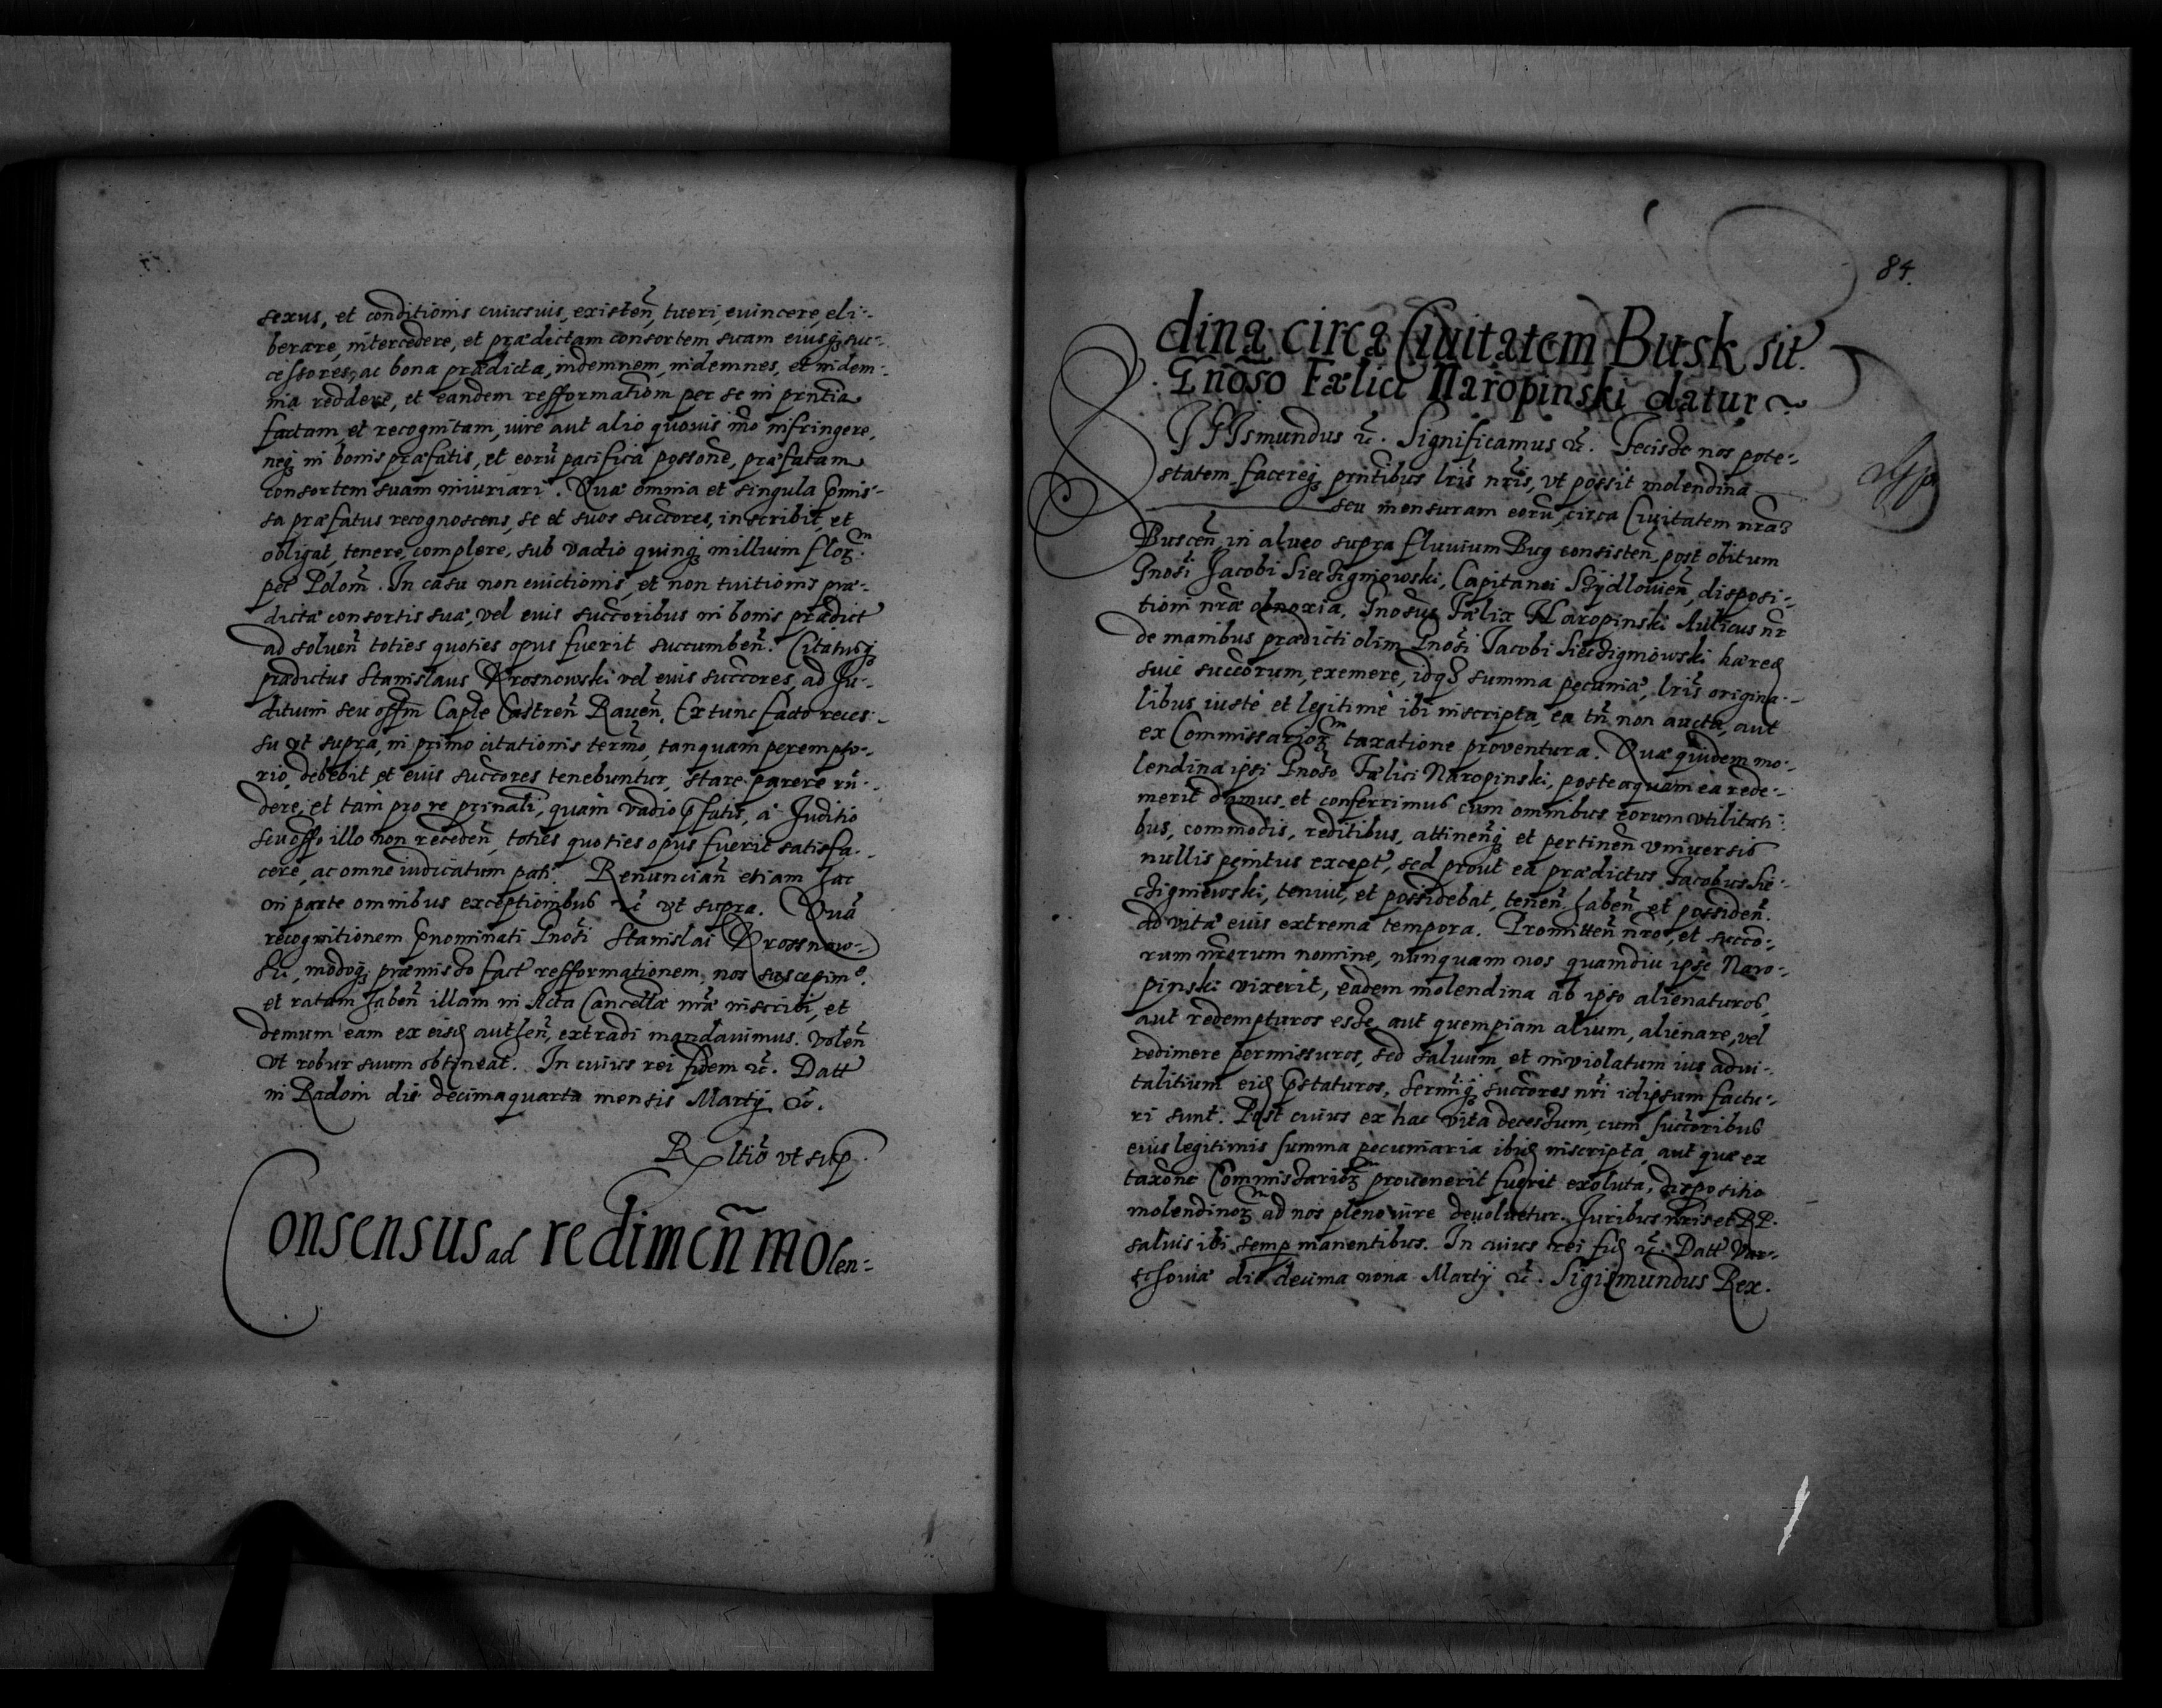 sexus, et conditionis cuiusuis, existen̄, tueri, euincere, eli-
berare, intercedere, et prædictam consortem suam eiusq̨ suc-
cessores, ac bona prædicta, indemnem, indemnes, et indem-
nia reddere, et eandem refformatiōm per se in prn̄tia
factam, et recognitam, iure aut alio quouis mō infringere,
neq̨ in bonis præfatis, et eorū pacifica possōne, præfatam
consortem suam iniuriari. Quæ omnia et singula p̄mis-
sa præfatus recognoscens, se et suos succ̄ores, inscribit, et
obligat, tenere, complere, sub vadio quinq̨ millium flor̄.
pec̄ Polon̄. In casu non euictionis, et non tuitionis præ-
dictæ consortis suæ, vel euis succ̄oribus in bonis prædict̄
ad soluen̄ toties quoties opus fuerit succumben̄. Citatusq̨
prædictus Stanislaus Krosnowski vel euis succ̄ores, ad Ju-
ditium seu offm̄ Capl̄e Castren̄ Rauen̄. Extunc facto reces-
su vt supra, in primo citationis term̄o, tanquam perempto-
rio, debebit, et euis succ̄ores tenebuntur, stare parere rn̄-
dere, et tam pro re prin̄ali, quam vadio p̄fatis, à Juditio
seu offō illo non receden̄, toties quoties opus fuerit satisfa-
cere, ac omne iudicatum pati. Renuncian̄ etiam hac
in parte omnibus exceptionibus &c̄ vt supra. Quā
recognitionem p̄nominati Gn̄osi Stanislai Krossnow-
ski, modoq̨ præmisso fact̄ refformationem, nos suscepim̄9
et ratam haben̄ illam in Acta Cancell̄æ nr̄æ inscribi, et
demum eam ex eisd̨ authen̄, extradi mandauimus. Volen̄
vt robur suum obtineat. In cuius rei fidem &c̄. Datt̄
in Radom die decimaquarta mensis Martij &c̄.
R̄ltiō vt sup̱.
Consensus ad redimen̄ molen-
84.
dina circa Ciuitatem Busk sit.
Gn̄oso Fælici Naropinski datur
SIGIsmundus &c̄. Significamus &c̄. Fecisse nos pote-
statem facereq̨ prn̄tibus lr̄is nr̄is, vt possit molendina
seu mensuram eorū, circa Ciuitatem nrā̄
Buscen̄ in alueo supra fluuium Bug consisten̄ post obitum
Gn̄osi Jacobi Sieczigniowski, Capitanei Szydlouien̄, disposi-
tioni nr̄æ obnoxia, Gn̄osus Fælix Naropinski Aulicus nr̄
de manibus prædicti olim Gn̄osi Jacobi Sieczigniowski hæred̨
siue succ̄orum, exemere, idq̨ summa pecuniæ, lr̄is origina-
libus iustè et legitimè ibi inscripta, ea tn̄ non aucta, aut
ex Commissarior̄ taxatione proventura. Quæ quidem mo-
lendina ipsi Gn̄oso Fælici Naropinski, posteaquam ea rede-
merit damus et conferrimus cum omnibus eorum vtilitati-
bus, commodis, reditibus, attinen̄q̨ et pertinen̄ vniuersis
nullis penitus except̄, sed prout ea prædictus Jacobus Sie-
czigniewski, tenuit, et possidebat, tenen̄ haben̄ et possiden̄.
ad vitæ eius extrema tempora. Promitten̄ nr̄o, et succ̄o-
rum nr̄orum nomine, nunquam nos quamdiu ipse Naro-
pinski vixerit, eadem molendina ab ipso alienaturos,
aut redempturos esse, aut quempiam alium, alienare, vel
redimere permissuros, sed saluum, et inuiolatum ius adui-
talitium eid̨ p̄staturos, Serm̄iq̨ succ̄ores nr̄i idipsum factu-
ri sunt. Post cuius ex hac vita decessum, cum succ̄oribus
eius legitimis summa pecuniaria ibid̨ inscripta, aut quæ ex
taxōne Commissarior̄ prouenerit fuerit exoluta, dispositio
molendinor̄ ad nos pleno iure deuoluetur. Juribus nr̄is et RP.
saluis ibi semp̱ manentibus. In cuius rei fid̨ &c̄. Datt̄ Var-
schouiæ die decima nona Martij &c̄. Sigismundus Rex.